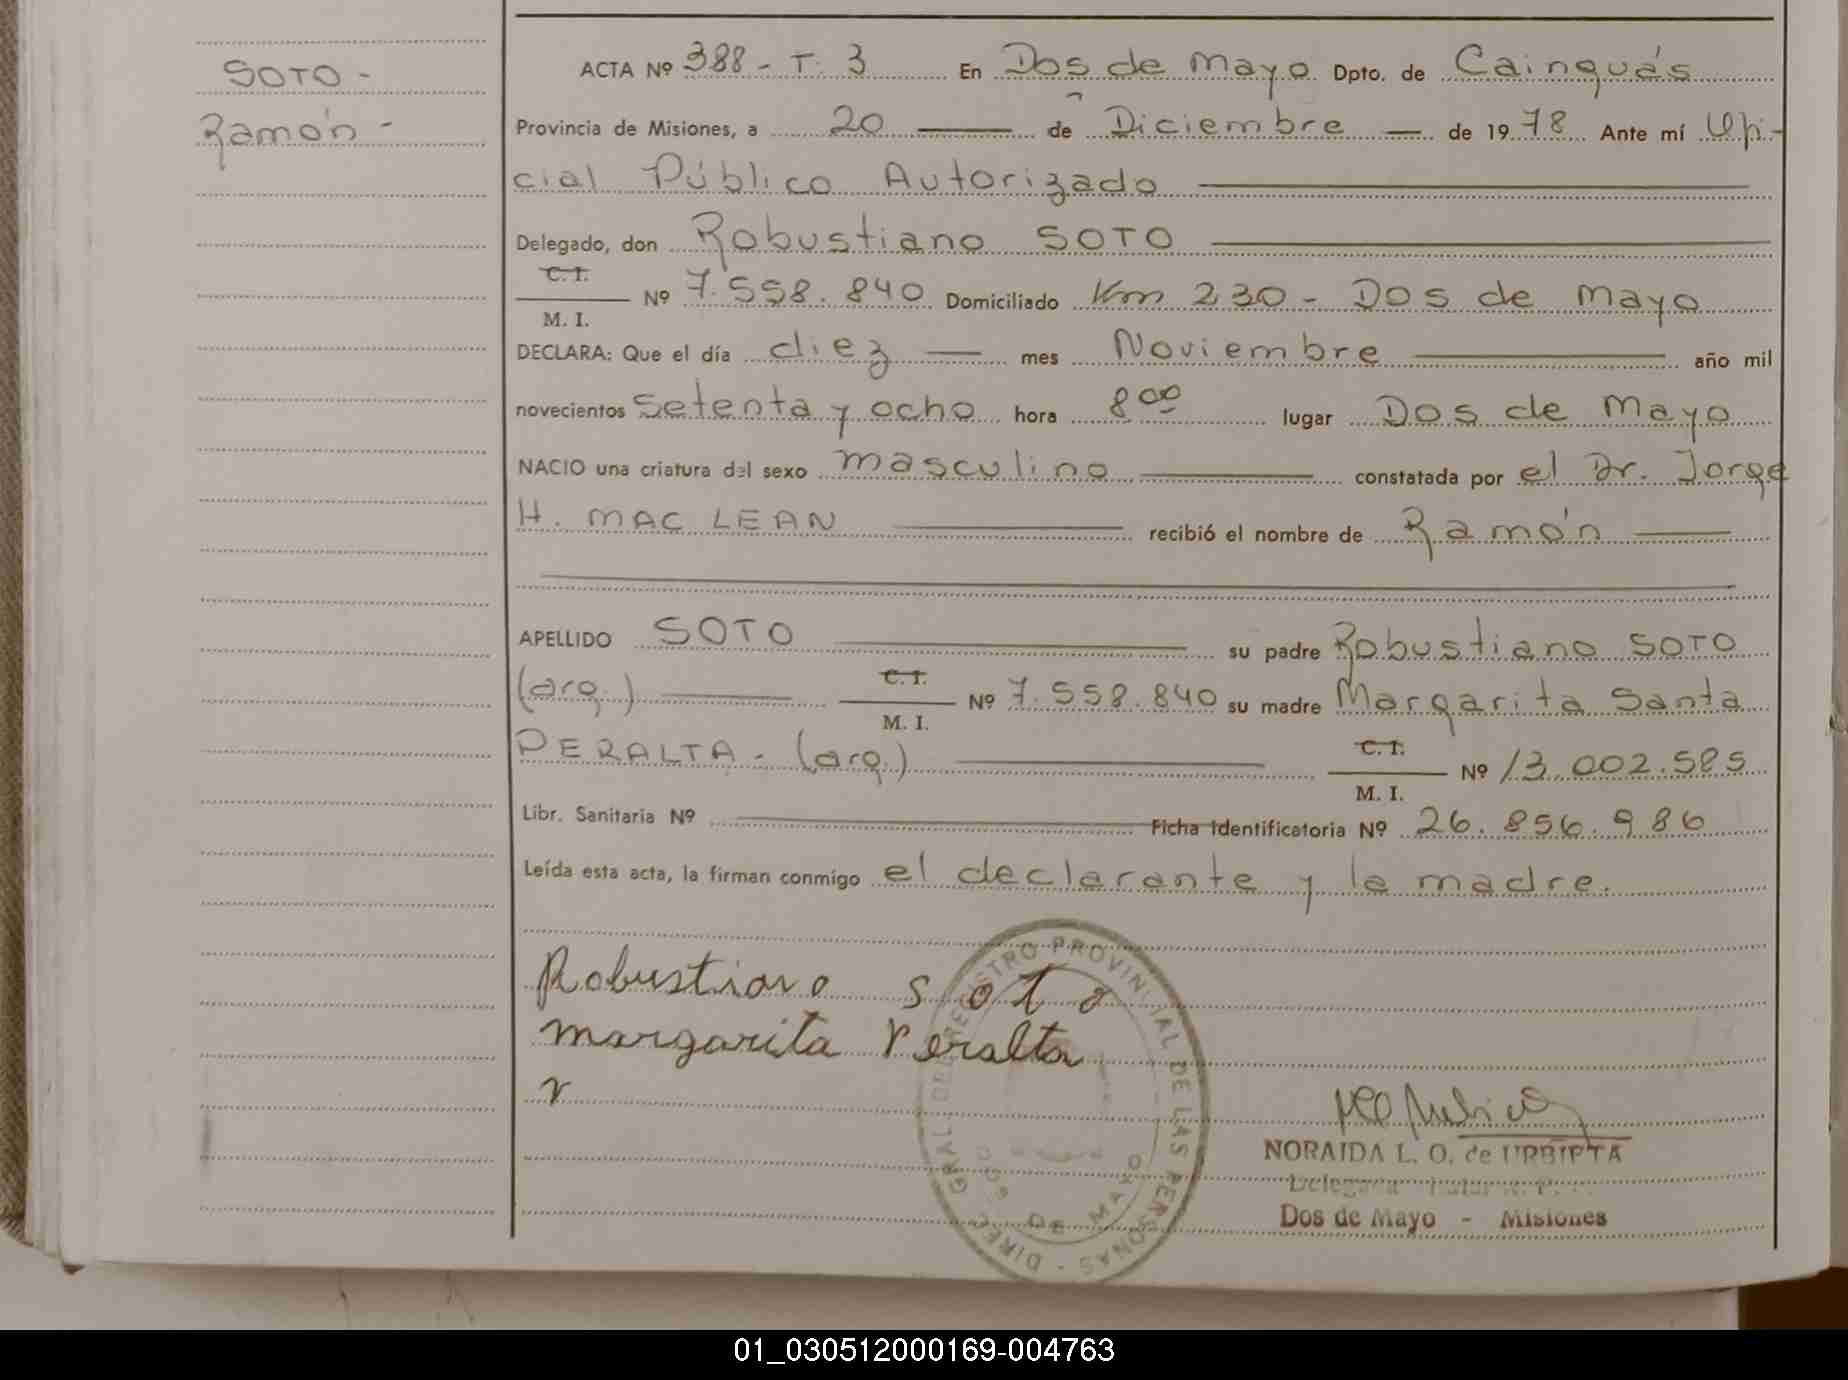 SOTO -
Ramón -
ACTA Nº 388 - T. 3 En Dos de Mayo Dpto. de Cainguás
Provincia de Misiones, a 20 de Diciembre de 1978 Ante mí Ofi-
cial Público Autorizado
Delegado, don Robustiano SOTO
C. I.
M. I. Nº 7.558.840 Domiciliado Km 230 - Dos de Mayo
DECLARA: Que el día diez mes Noviembre año mil
novecientos setenta y ocho hora 8 00 lugar Dos de Mayo
NACIO una criatura del sexo masculino constatada por el Dr. Jorge
H. MAC LEAN recibió el nombre de Ramón
APELLIDO SOTO su padre Robustiano SOTO
(arg.) C. I. M. I. Nº 7.558.840 su madre Margarita Santa
PERALTA - (arg.) C. I. M. I. Nº 13.002.585
Libr. Sanitaria Nº Ficha Identificatoria Nº 26.856.986
Leída esta acta, la firman conmigo el declarante y la madre.
Robustiano soto
margarita Peralta
DIREC. GRAL. DEL REGISTRO PROVINCIAL DE LAS PERSONAS -
DOS DE MAYO
NORAIDA L. O. de URBIETA
Delegada Titular R. P.
Dos de Mayo - Misiones
01_030512000169-004763